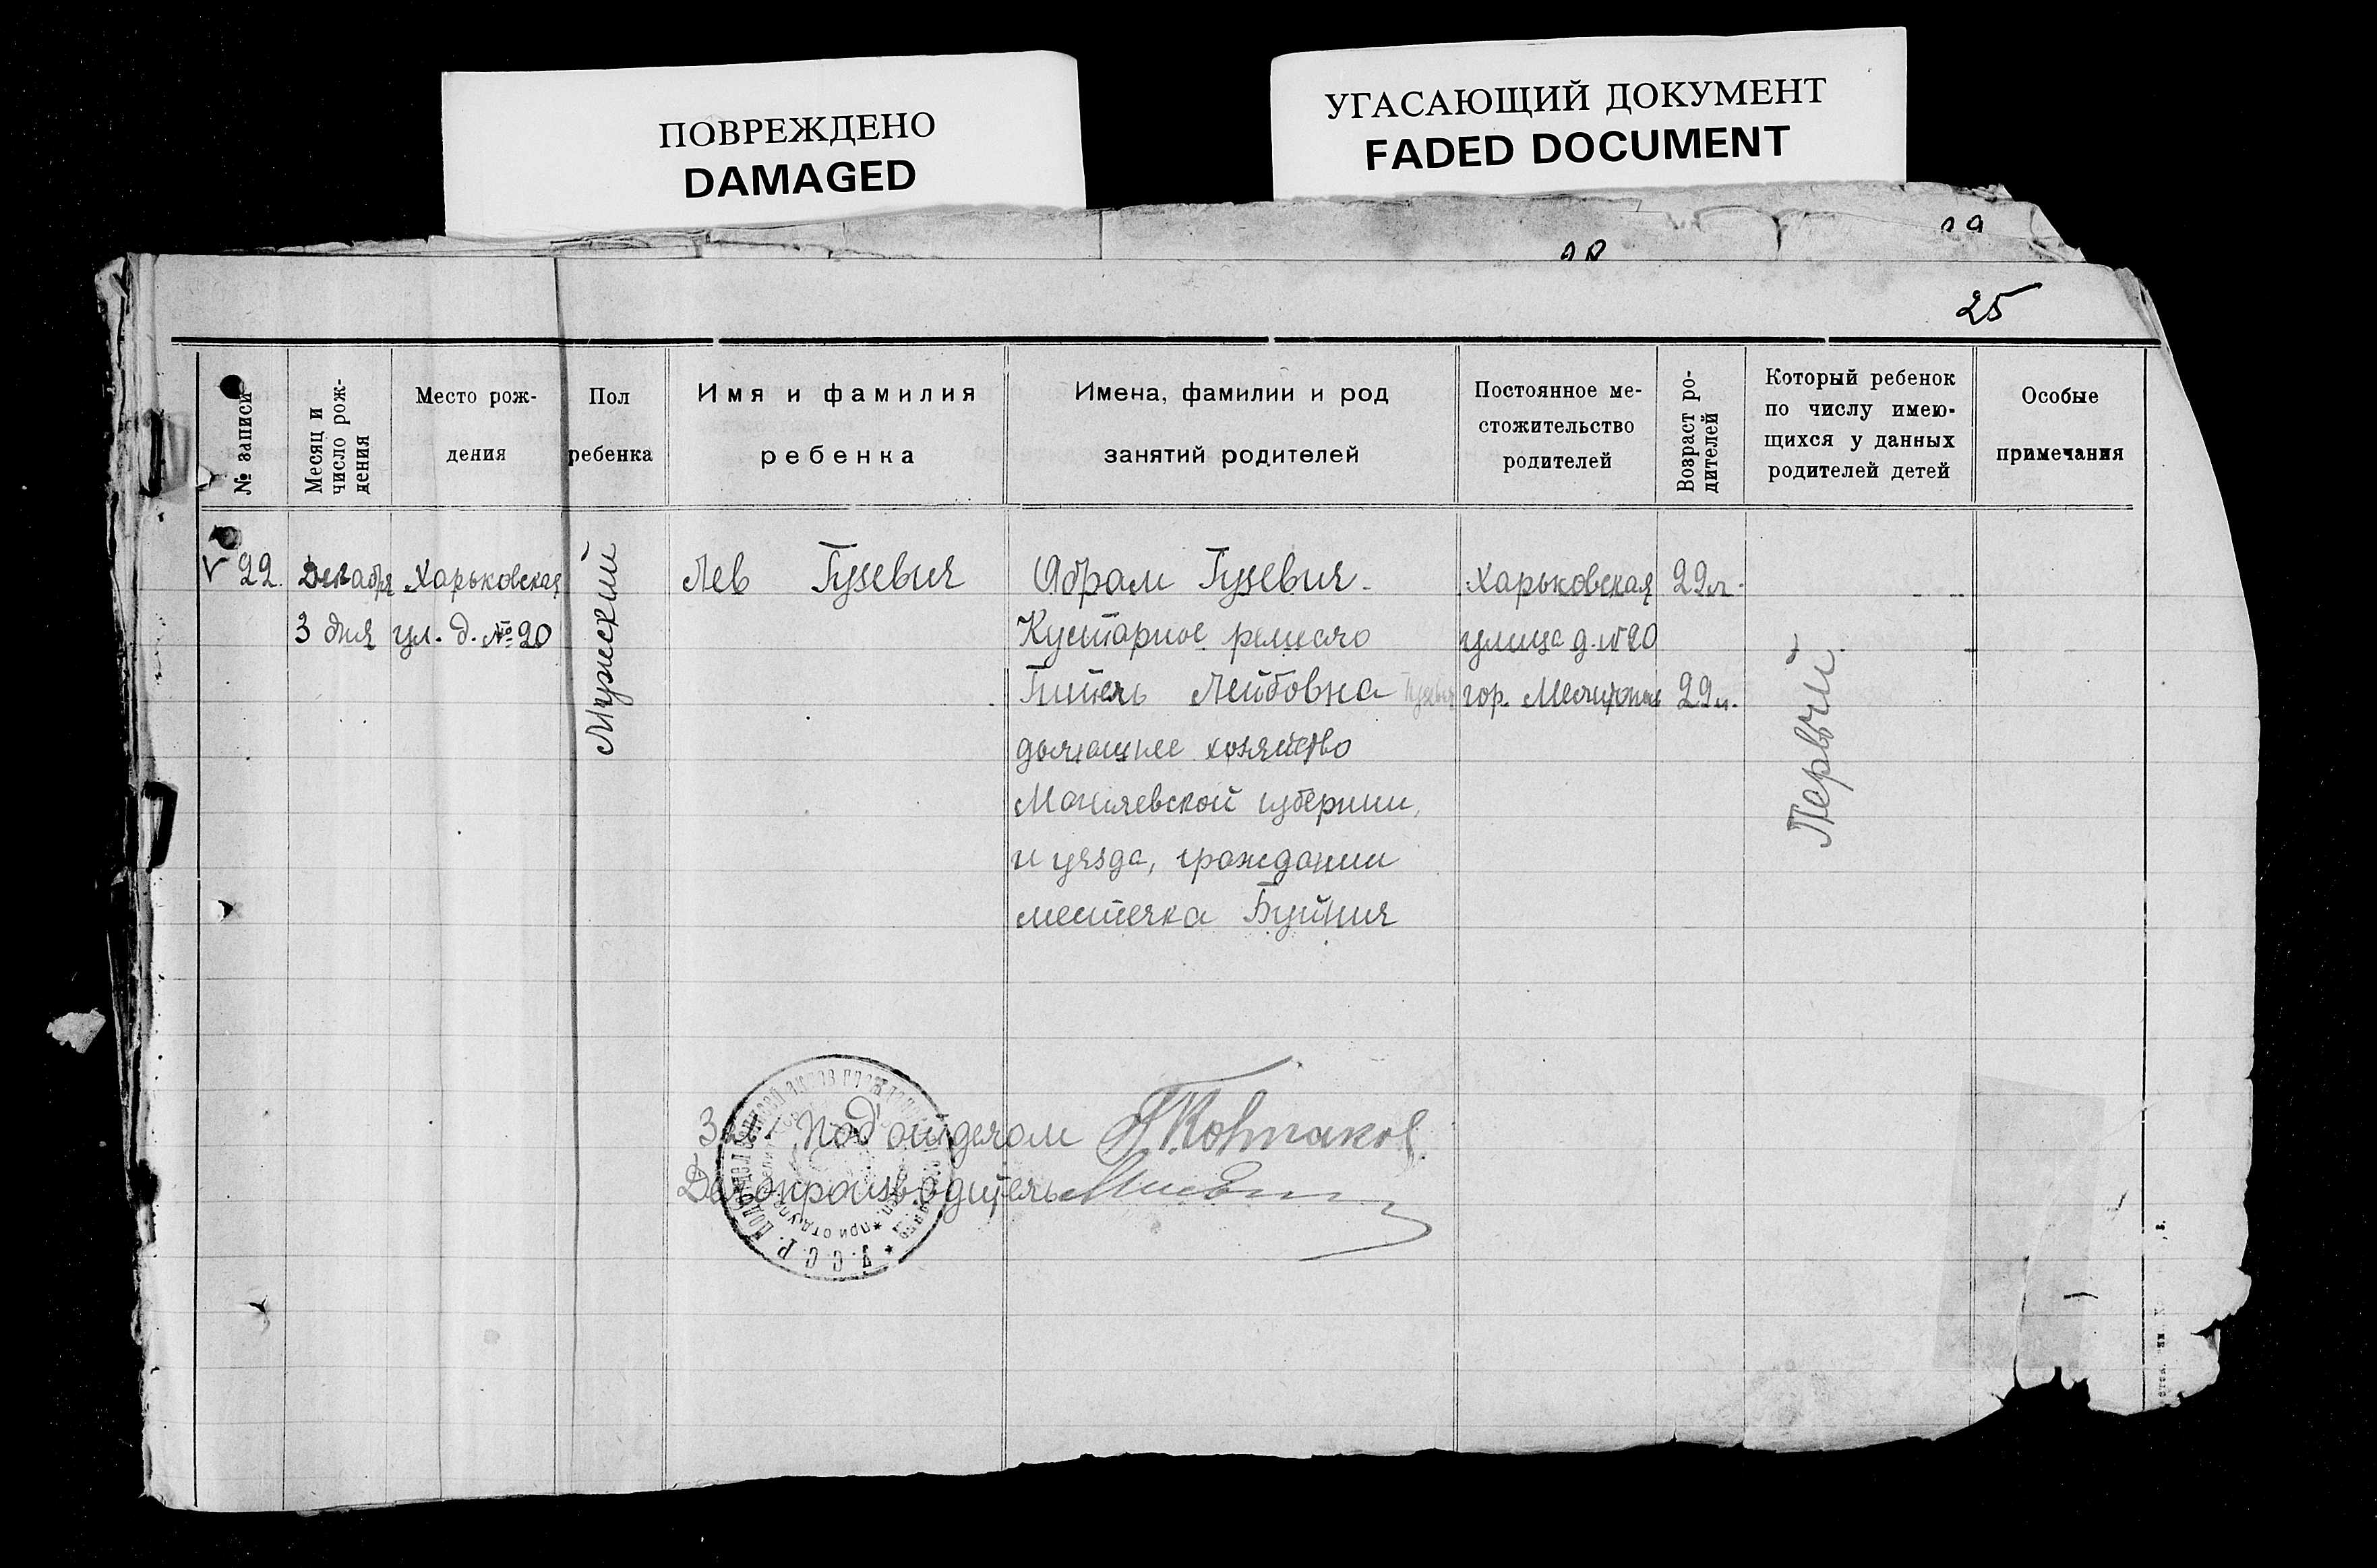 ПОВРЕЖДЕНО
DAMAGED
УГАСАЮЩИЙ ДОКУМЕНТ
FADED DOCUMENT
25
№ записи
Месяц и
число рож-
дения
Место рож-
дения
Пол
ребенка
Имя и фамилия
ребенка
Имена, фамилии и род
занятий родителей
Постоянное ме-
стожительство
родителей
Возраст ро-
дителей
Который ребенок
по числу имею-
щихся у данных
родителей детей
Особые
примечания
22.
Декабря
3 дня
Харьковская
ул. д. № 20
Мужский
Лев Гузевич
Абрам Гузевич
Кустарное ремесло
Гитель Лейбовна Гузевич
домашнее хозяйство
Могилевской губернии,
и уезда, граждании
местечка Буйнич
Харьковская
улица д. № 20
гор. Мелитополь
22 л.
22 л.
Первый
Зав. Подотделом
Делопроизводитель
У.С.С.Р. Подотдел записей актов гражданск
при отд. упр.